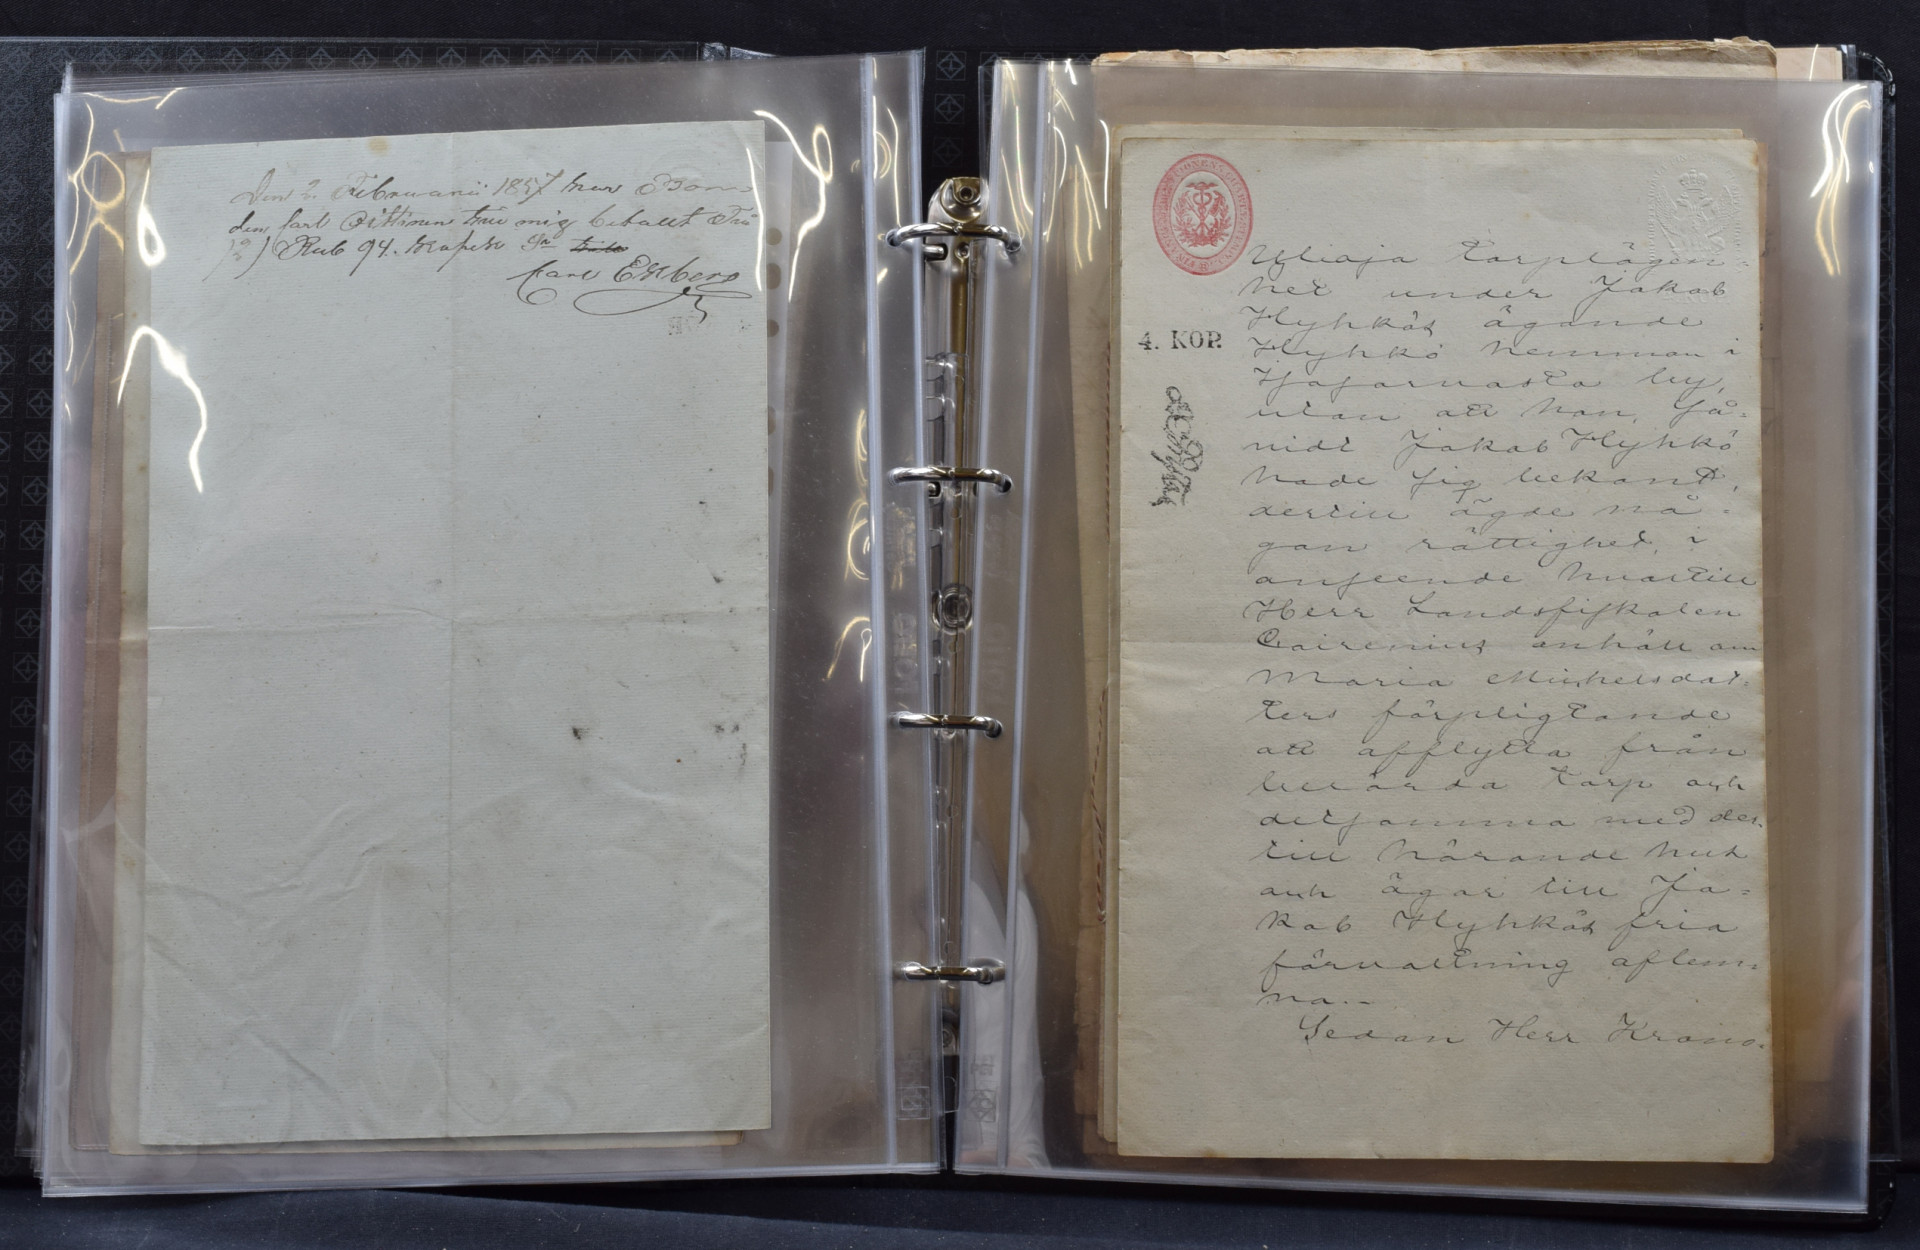 Den 2. Februarii 1857 har Bon=
den Carl Oittinen till mig betallt Trä
(3) Rub 94. kopek Sr
Carl Ekberg
4. KOP.
torplägen
het under Jakob
Hyhkös ägande
Hyhkö hemman i
by,
utan att hon, så=
vidt Jakob Hyhkö
hade sig bekant,
dertill ägde nå=
gon rättighet, i
anseende hvartill
Herr Landsfiskalen
Cairenius anhöll om
Maria Michelsdot=
ters förpligtande
att afflytta från
berörda torp och
detsamma med der=
till hörande hus
och ägor till Ja=
kob Hyhkös fria
förvaltning aflem=
na.–
Sedan Herr Krono=